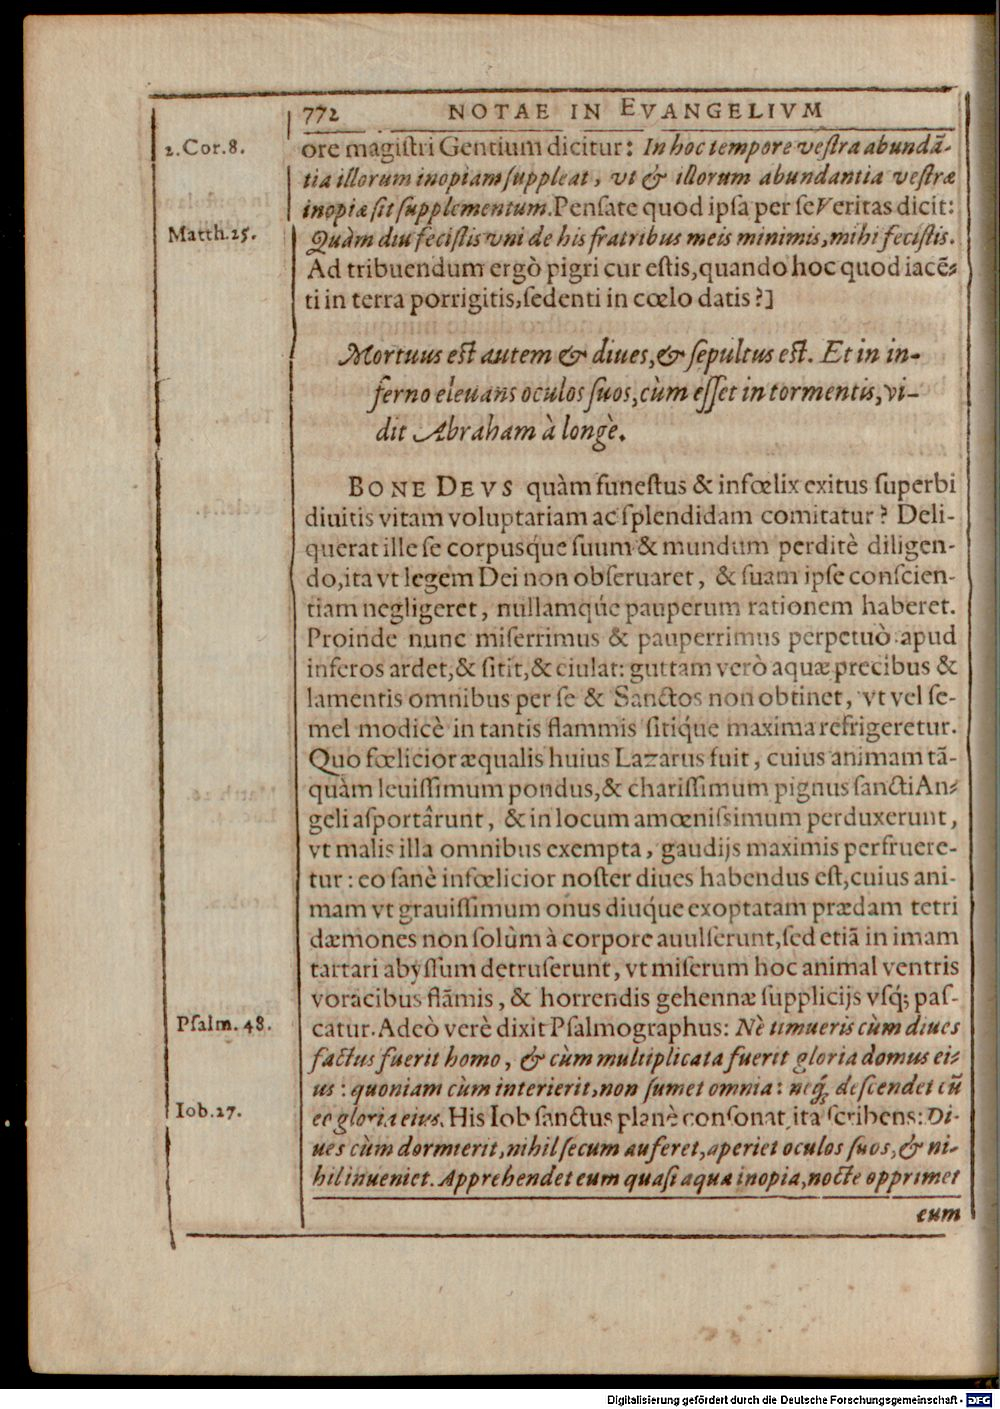 772 NOTAE IN EVANGELIVM
2.Cor.8.
ore magiſtri Gentium dicitur: In hoc tempore veſtra abundā-
tia illorum inopiam ſuppleat, vt & illorum abundantia veſtræ
inopiæ ſit ſupplementum. Penſate quod ipſa per ſe Veritas dicit:
Matth.25.
Quàm diu feciſtis vni de his fratribus meis minimis, mihi feciſtis.
Ad tribuendum ergò pigri cur eſtis, quando hoc quod iacē-
ti in terra porrigitis, ſedenti in cœlo datis?]
Mortuus eſt autem & diues, & ſepultus eſt. Et in in-
ferno eleuans oculos ſuos, cùm eſſet in tormentis, vi-
dit Abraham à longè.
BONE DEVS quàm funeſtus & infœlix exitus ſuperbi
diuitis vitam voluptariam ac ſplendidam comitatur? Deli-
querat ille ſe corpusq́ue ſuum & mundum perditè diligen-
do, ita vt legem Dei non obſeruaret, & ſuam ipſe conſcien-
tiam negligeret, nullamq́ue pauperum rationem haberet.
Proinde nunc miſerrimus & pauperrimus perpetuò apud
inferos ardet, & ſitit, & eiulat: guttam verò aquæ precibus &
lamentis omnibus per ſe & Sanctos non obtinet, vt vel ſe-
mel modicè in tantis flammis ſitiq́ue maxima refrigeretur.
Quo fœlicior æqualis huius Lazarus fuit, cuius animam tā-
quàm leuiſſimum pondus, & chariſſimum pignus ſancti An-
geli aſportârunt, & in locum amœniſsimum perduxerunt,
vt malis illa omnibus exempta, gaudijs maximis perfruere-
tur: eo ſanè infœlicior noſter diues habendus eſt, cuius ani-
mam vt grauiſſimum onus diuq́ue exoptatam prædam tetri
dæmones non ſolùm à corpore auulſerunt, ſed etiā in imam
tartari abyſſum detruſerunt, vt miſerum hoc animal ventris
voracibus flāmis, & horrendis gehennæ ſupplicijs vſq; paſ-
Pſalm.48.
catur. Adeò verè dixit Pſalmographus: Nè timueris cùm diues
factus fuerit homo, & cùm multiplicata fuerit gloria domus ei-
us: quoniam cùm interierit, non ſumet omnia: neq́; deſcendet cū
Iob.27.
eo gloria eius. His Iob ſanctus planè conſonat, ita ſcribens: Di-
ues cùm dormierit, nihil ſecum auferet, aperiet oculos ſuos, & ni-
hil inueniet. Apprehendet eum quaſi aqua inopia, nocte opprimet
eum
Digitalisierung gefördert durch die Deutsche Forschungsgemeinschaft - DFG